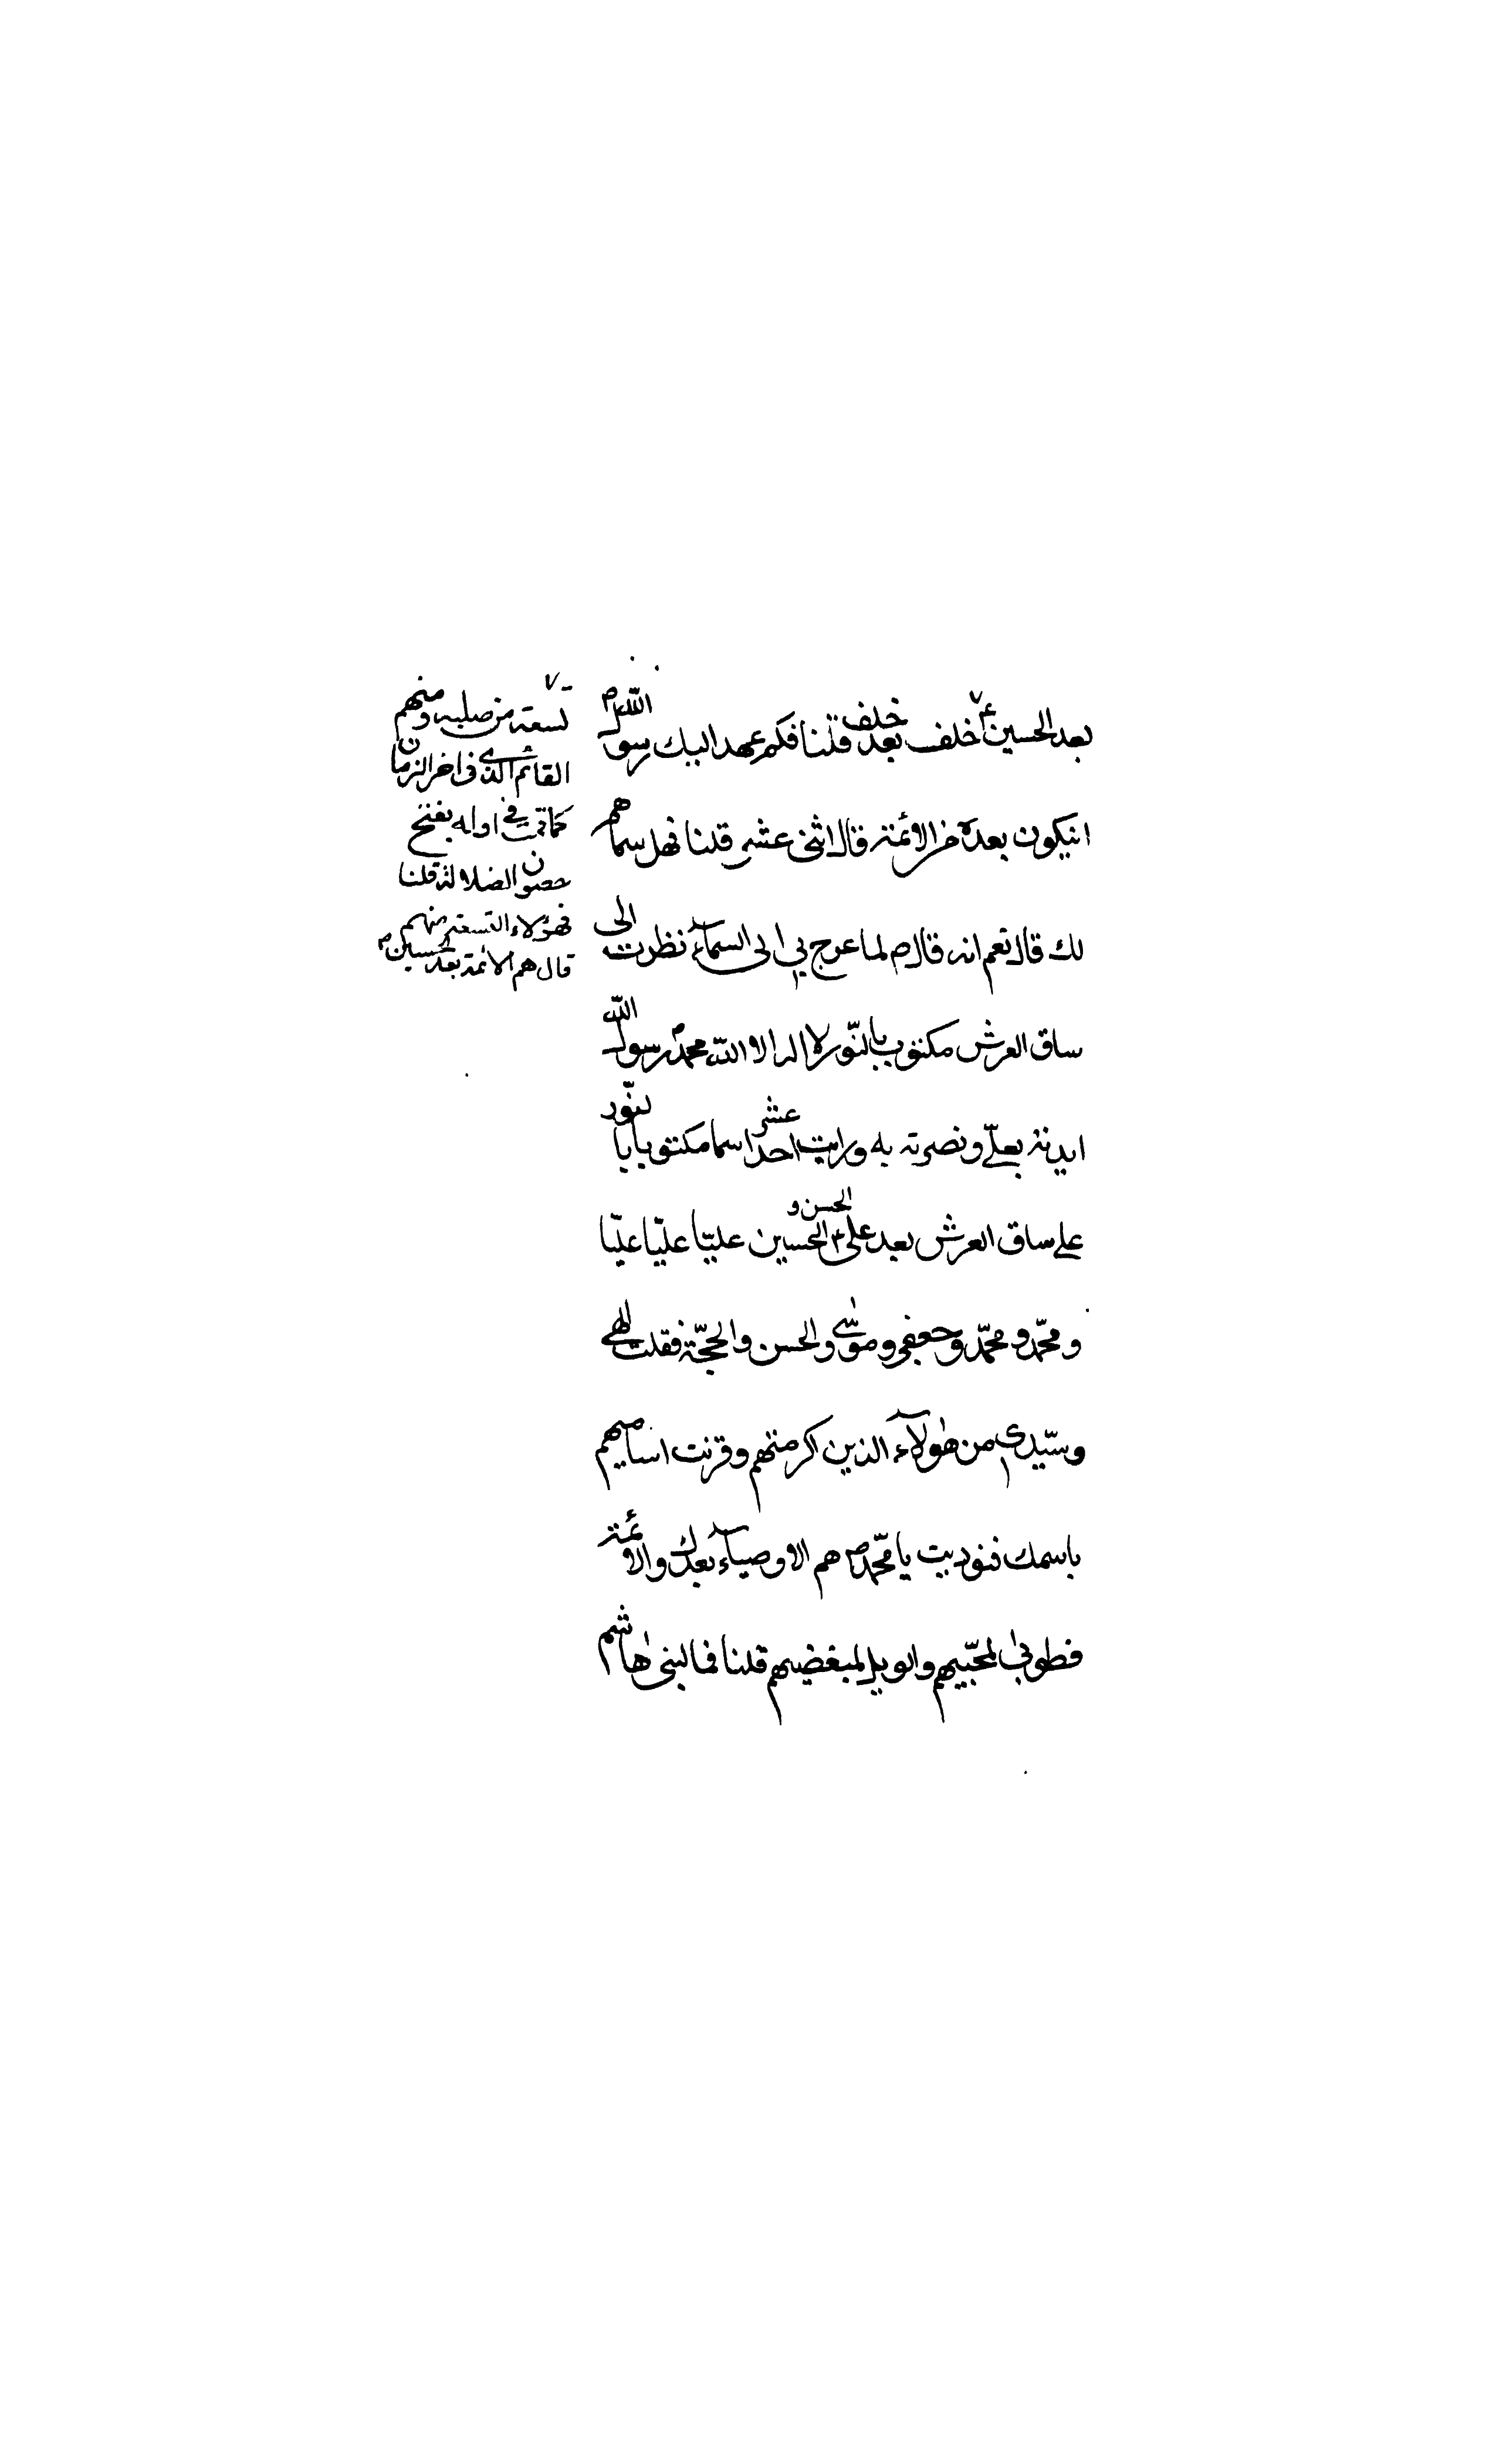 بعد الحسين ع خلف بعد خلف قلنا فكم عهد اليك رسول الله ص
ان يكون بعده من الائمة قال اثنى عشر قلنا فهل سماهم
لك قال نعم انه قال ص لما عرج بي الى السمآء نظرت الى
ساق العرش مكتوب بالنّور لا اله الا اللّه محمد ص رسول اللّه
ايدته بعلّي ونصرته به ورايت احد عشر اسما مكتوبا بالنّور
على ساق العرش بعد علي ع الحسن و الحسين عليّا عليّا عليّا
و محمّد و محمّد و جعفر و موسٰى و الحسن و الحجّة فقلت الهي
و سيّدي من هٰولآء الذين اكرمتهم و قرنت اساميهم
باسمك فنوديت يا محمّد ص هم الاوصيآء بعدك والائمة
فطوبىٰ لمحبّيهم و الويل لمبغضيهم قلنا فما لبنى هٰاشم
تسعة من صلبه و منهم
القائم الذي في اخر الزمان
كما قمت في اوله يفتح
حصون الضلالة قلنا
فهؤلاء التسعة منهم
قال هم الائمة بعد الحسين ع